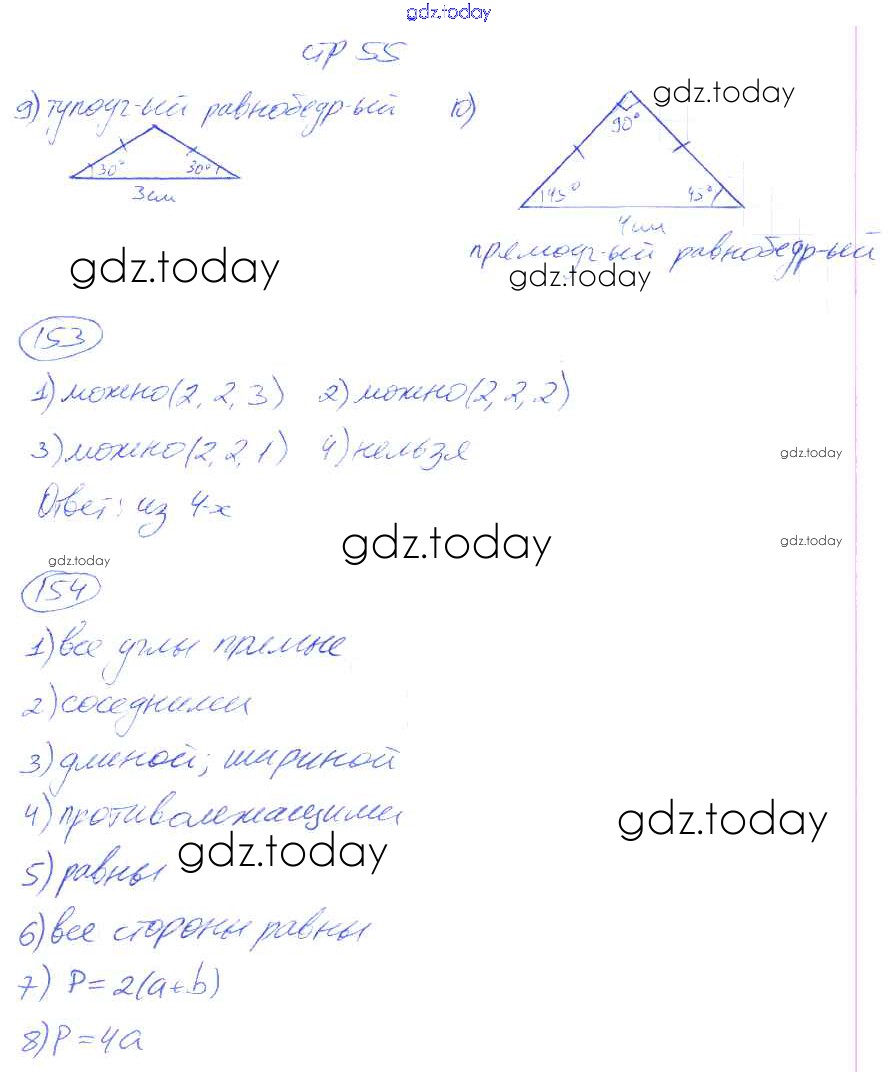 gdz.today
стр 55
9) тупоуг-ый равнобедр-ый 10)
gdz.today
90°
30° 30°
3 см
45° 45°
4 см
прямоуг-ый равнобедр-ый
gdz.today
gdz.today
153
1) можно (2, 2, 3) 2) можно (2, 2, 2)
3) можно (2, 2, 1) 4) нельзя
gdz.today
Ответ: из 4-х
gdz.today
gdz.today
gdz.today
154
1) все углы прямые
2) соседними
3) длиной; шириной
4) противолежащими
gdz.today
gdz.today
5) равны
6) все стороны равны
7) P = 2(a+b)
8) P = 4a